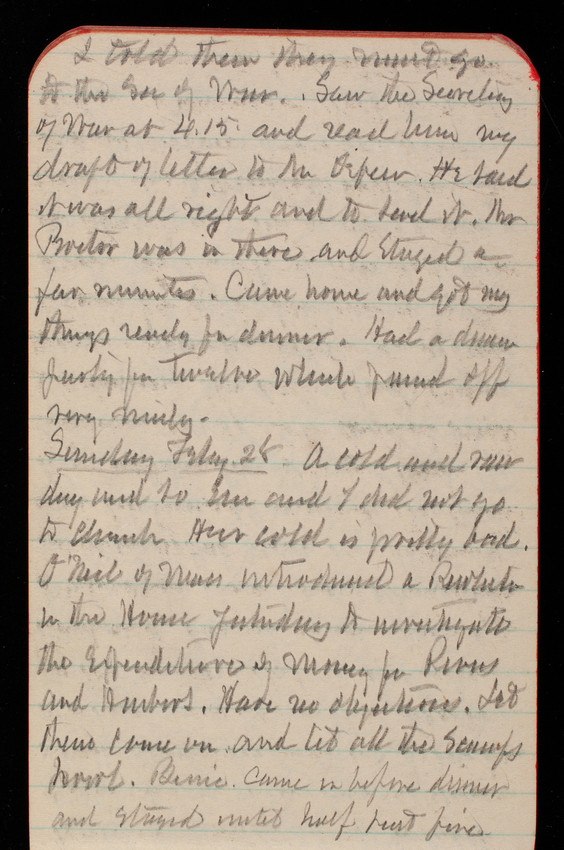 I told them they must go
to the Sec of War. Saw the Secretary
of War at 4.15 and read him my
draft of letter to Mr. He said
it was all right and to send it. Mr
Proctor was in there and stayed a
few minutes. Came home and got my
things ready for dinner. Had a dinner
party for twelve which passed off
very nicely.
Sunday Feby 28 A cold and raw
day and to Em and I did not go
to church Her cold is pretty bad.
O'Neil of Mass introduced a Resolution
in the House yesterday to investigate
the Expenditure of Money for Rivers
and Harbors. Have no objections. Let
them come on and let all the Scamps
howl. Came in before dinner
and stayed until half past five.